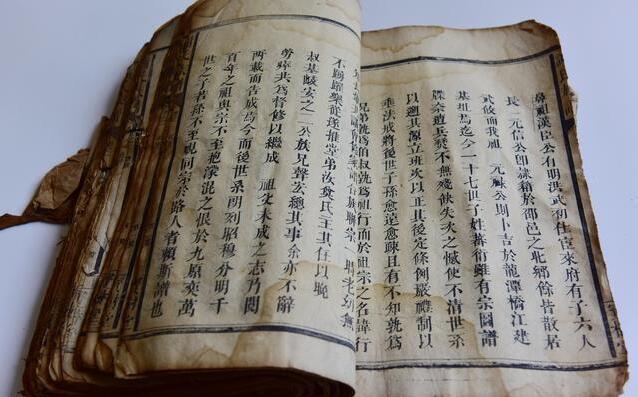 鼻祖漢臣公有明洪武初仕宦來府有子六人
長 元信公卽隸籍於邵邑之北鄉餘皆散居
武攸而我祖 元祿公則卜吉於龍潭橋江建
基祖焉迄今一十七世子姓蕃衍雖有宗圖譜
牒奈遭兵燹不無殘缺失次之憾使不清世系
以遡其源立班次以正其後定條例嚴禮制以
垂法戒將後世子孫愈遠愈疎且有不知孰爲
兄弟孰爲伯叔孰爲祖行而於祖宗之名諱行
不踴躍樂從遂推堂弟汝氏主其任以晚
叔基峻安之二公族兄聲安總其事余亦不辭
勞瘁共爲督修以繼成 祖父未成之志乃閱
兩載而告成焉今而後世系明列昭穆分明千
百年之祖與宗不至抱濛混之恨於九原奕萬
世之子若孫不至視同宗於路人者賴斯譜也